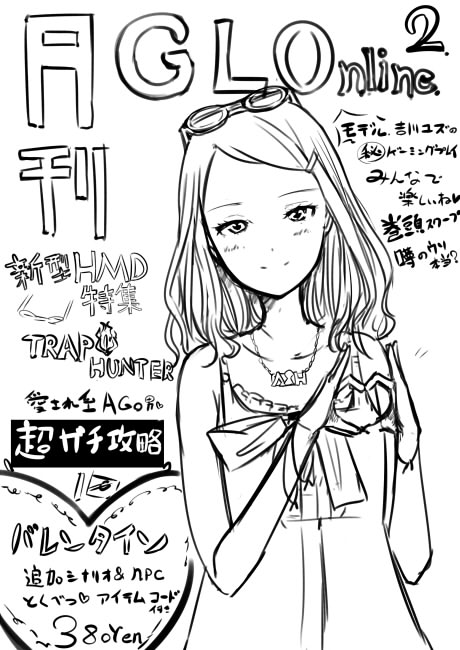 月刊
AGLOnline.
2.
モデル.吉川ユズの
㊙ゲーミングプレイ
みんなで
楽しいね♥
巻頭スクープ
噂のウリ
本当?
新型HMD
特集
TRAP HUNTER
愛され系AGO
超ガチ攻略
AXH
バレンタイン
追加シナリオ&NPC
とくべつ♡アイテムコード
付き
380Yen